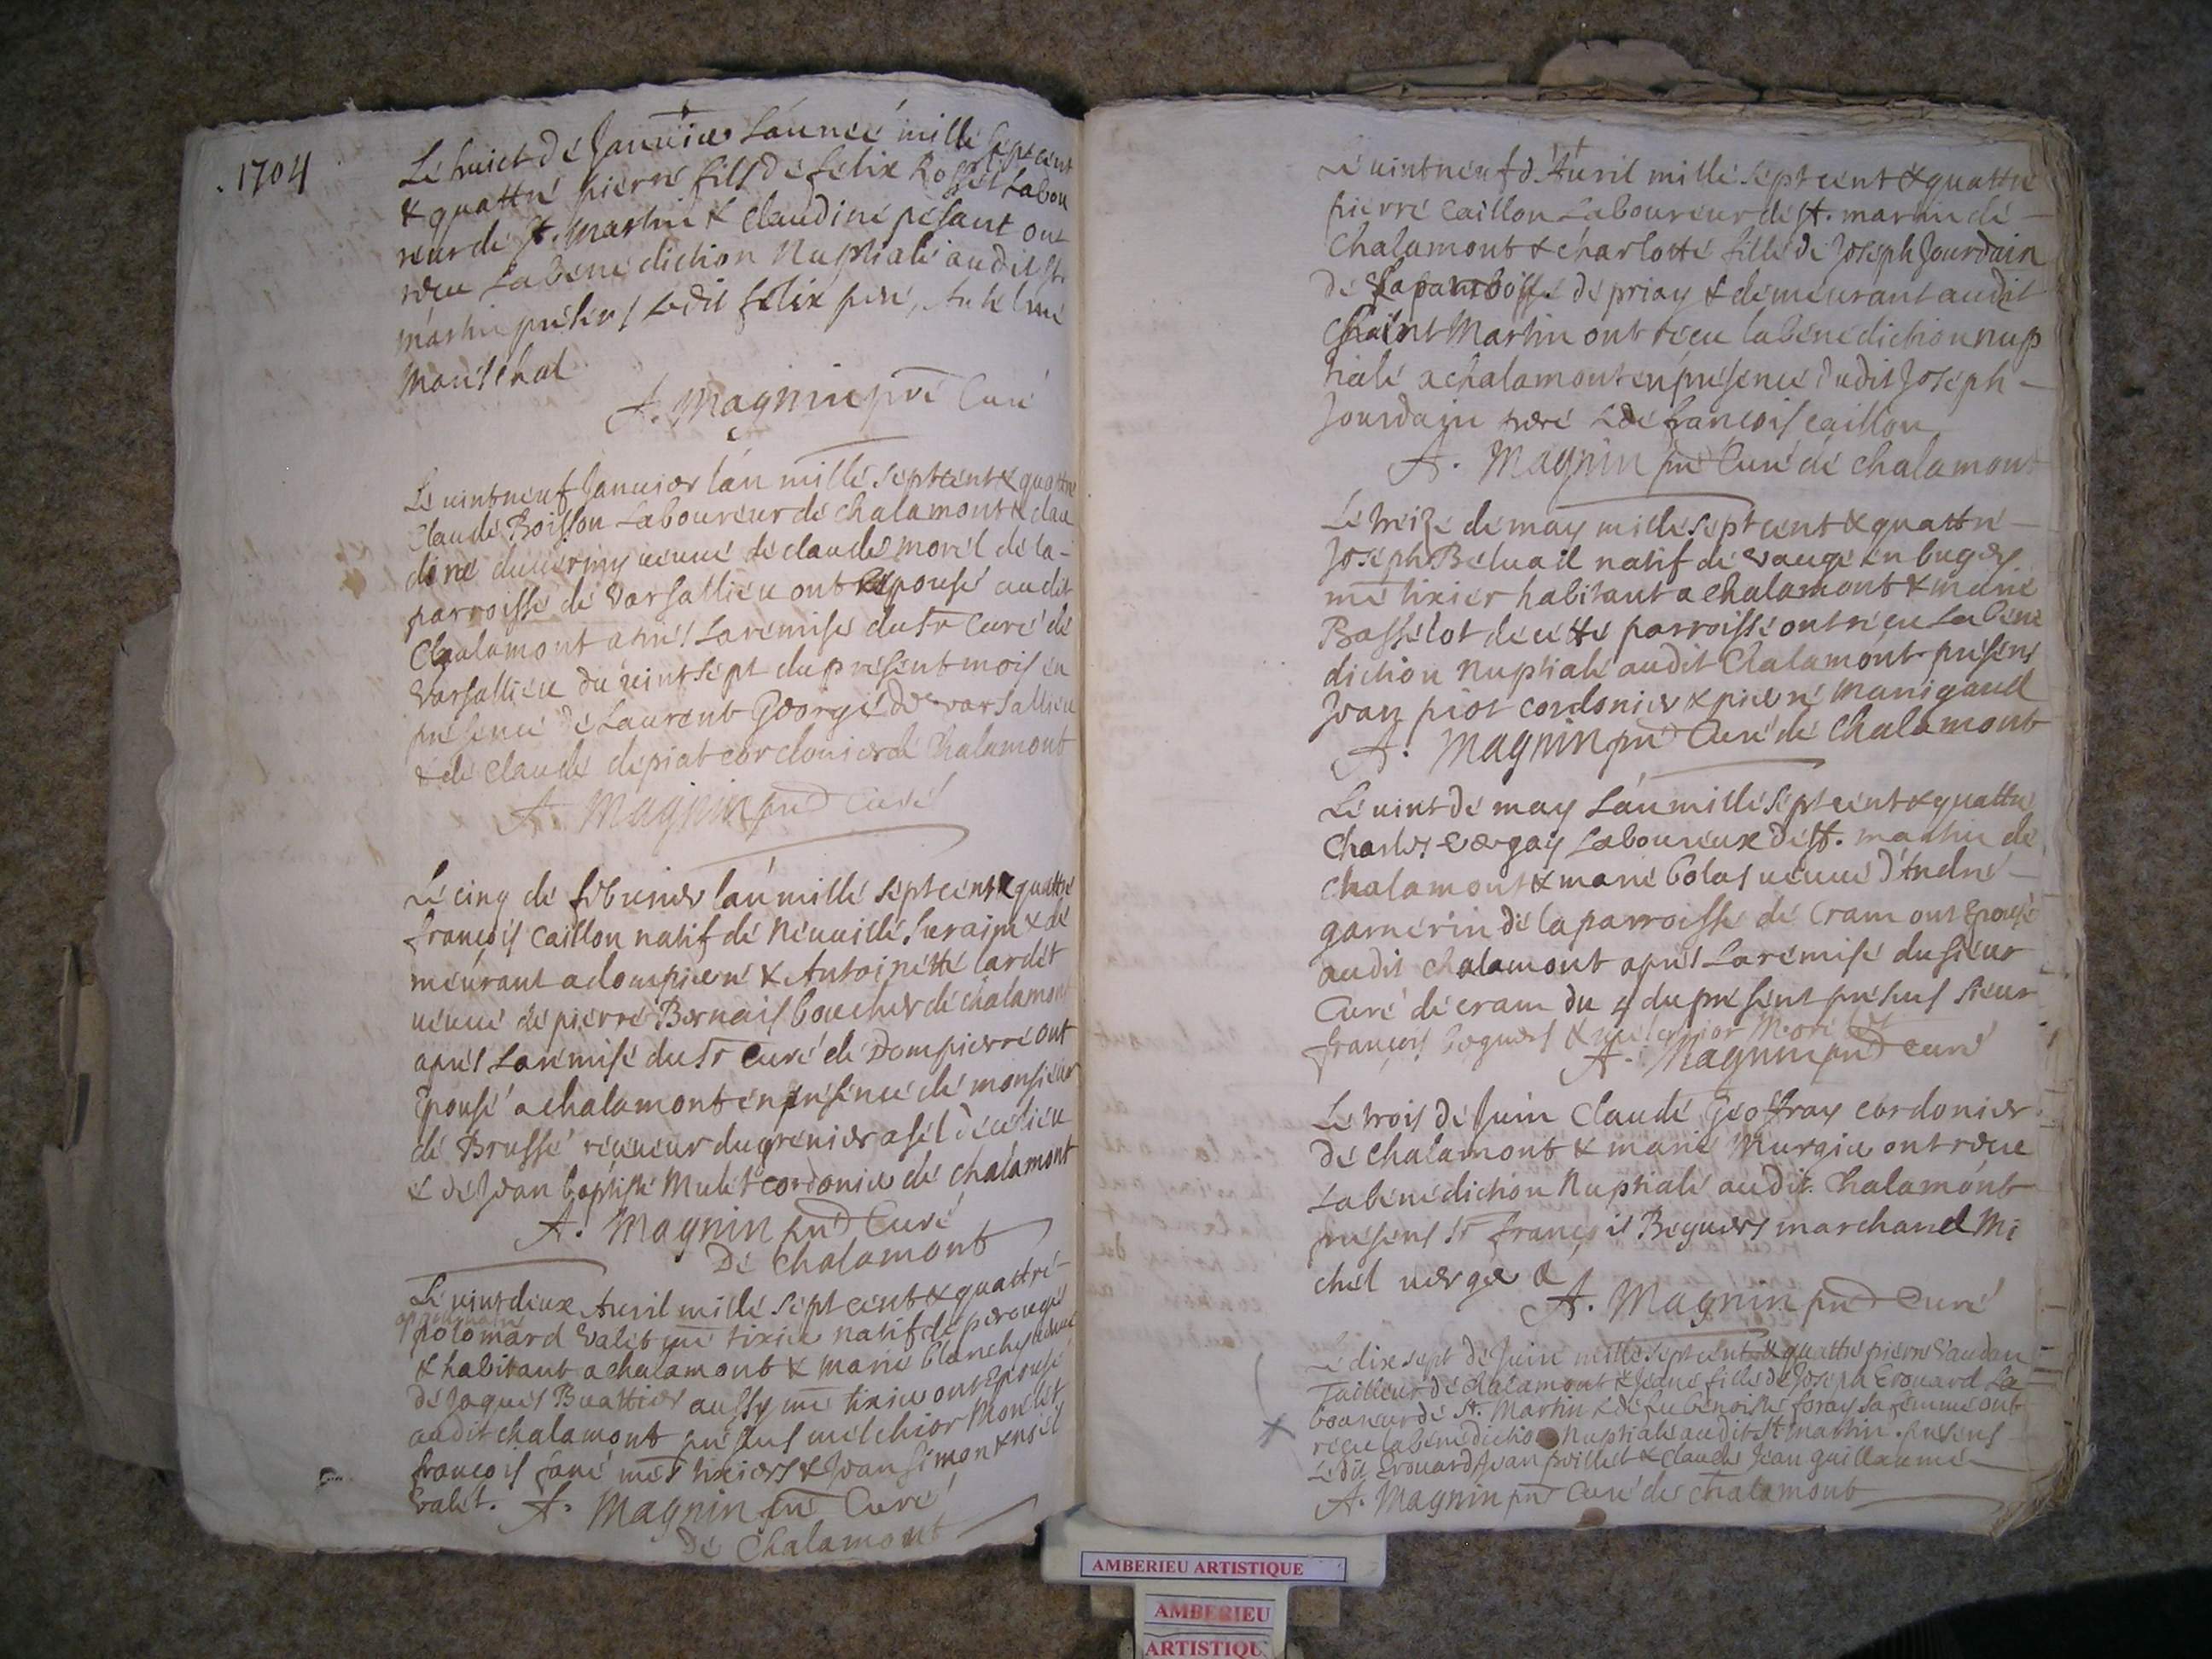 1704
Le huict de Januier L'année mille sept cent
& quattre pierre fils de felix Rosset Labou
reur de St. Martin & Claudine pesant ont
receu La benediction Nuptiale audit St.
martin presens Ledit felix pere, Anthelme
Monsenal
A. Magnin pre Curé
Le vintneuf Januier l'an mille sept cent & quattre
Claude Boisson Laboureur de Chalamont & clau
dine veuue de claude morel de la
parroisse de Varsallieu ont Epousé audit
Chalamont apres La remise du Sr Curé de
Varsallieu du vint sept du present mois en
presence de Laurent George de varsallieu
& de Claude depiat cordonier de Chalamont
A. Magnin pre Curé
Le cinq de feburier l'an mille sept cent & quattre
françois Caillon natif de Neuuille sur ains & de
meurant a dompierre & Antoinette lardet
veuue de pierre Bernais boucher de chalamont
apres La remise du Sr Curé de Dompierre ont
Epousé a chalamont en presence de monsieur
de Brosse receueur du grenier a sel de ce lieu
& de Jean baptiste Mulet cordonier de chalamont
A. Magnin pre Curé
De Chalamont
Le vint deux Auril mille sept cent & quattre
polomard Valet me tixier natif de perouges
& habitant a chalamont & Marie blanchy veuue
de Jaques Buattier aussy me tixier ont Epousé
audit chalamont presens melchior Morelet
françois fané mes tixiers & Jean Simon
Valet. A. Magnin pre Curé
De Chalamont
Le vintneuf d'Auril mille sept cent & quattre
pierre Caillon Laboureur de St. martin de
Chalamont & charlotte fille de Joseph Jourdain
de La parroisse de priay & demeurant audit
Saint Martin ont reçeu la benediction nup
tiale a chalamont en presence dudit Joseph
Jourdain pere & de françois caillon
A. Magnin pre Curé de Chalamont
Le treize de may mille sept cent & quattre
Joseph Beluail natif de vauge en bugey
me tixier habitant a Chalamont & marie
Basselot de cette parroisse ont reçeu La bene
diction Nuptiale audit Chalamont presens
Jean piot cordonier & pierre Manigand
A. Magnin pre Curé de Chalamont
Le vint de may L'an mille sept cent & quattre
Charles vergay Laboureur de St. martin de
Chalamont & marie bolas veuue d'André
garnerin de la parroisse de Cram ont Epousé
audit Chalamont apres La remise du sieur
Curé de cram du 4 du present presens sieur
françois beguers & melchior Morelet
A. Magnin pre Curé
Le trois de Juin Claude Geoffray cordonier
de Chalamont & marie Murgier ont receu
La benediction Nuptiale audit Chalamont
presens Sr françois Beguers marchand Mi
chel verger &
A. Magnin pre Curé
Le dix sept de Juin mille sept cent & quattre pierre Vaudan
Tailleur de Chalamont & Jeane fille de Joseph Erouard La
boureur de St. Martin & de fu benoiste foray sa femme ont
reçeu la benediction Nuptiale audit St martin. presens
Ledit Erouard, Jean poillet & Claude Jean guillaume
A. Magnin pre Curé de Chalamont
AMBERIEU ARTISTIQUE
AMBERIEU
ARTISTIQU